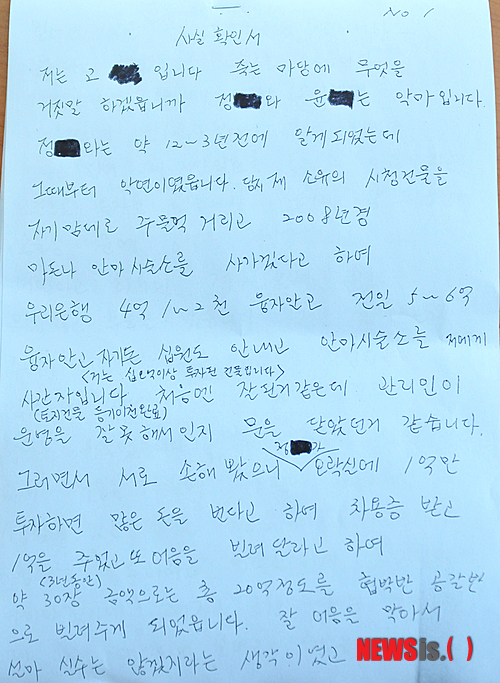 No 1
사실 확인서
저는 고 입니다 죽는 마당에 무엇을
거짓말 하겠읍니까 정 와 윤 는 악마입니다.
정 와는 약 12~3년전에 알게되었는데
그때부터 악연이였읍니다. 당시 제 소유의 시청건물을
자기 맘데로 주물럭 거리고 2008년경
마돈나 안마시술소를 사가겠다고 하여
우리은행 4억 1~2천 융자안고 전일 5~6억
융자안고 자기돈 십원도 안내고 안마시술소를 저에게
<저는 십오억이상 투자된 건물입니다>
사간자입니다 처음엔 잘된거같은데 관리인이
(토지건물 등기이전완료)
운병을 잘못해서인지 문을 닫았던거 같습니다.
정 가
그러면서 서로 손해 봤으니 오락실에 1억만
투자하면 많은 돈을 번다고 하여 차용증 받고
1억을 주었고 또 어음을 빌려 달라고 하여
(3년동안)
약 30장 금액으로는 총 20억정도를 협박반 공갈반
으로 빌려주게 되었읍니다. 잘 어음을 막아서
설마 실수는 않겠지라는 생각이였고
NEWSis.( )